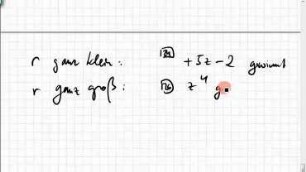 r ganz klein: +5z-2 gewinnt
r ganz groß: z⁴ g